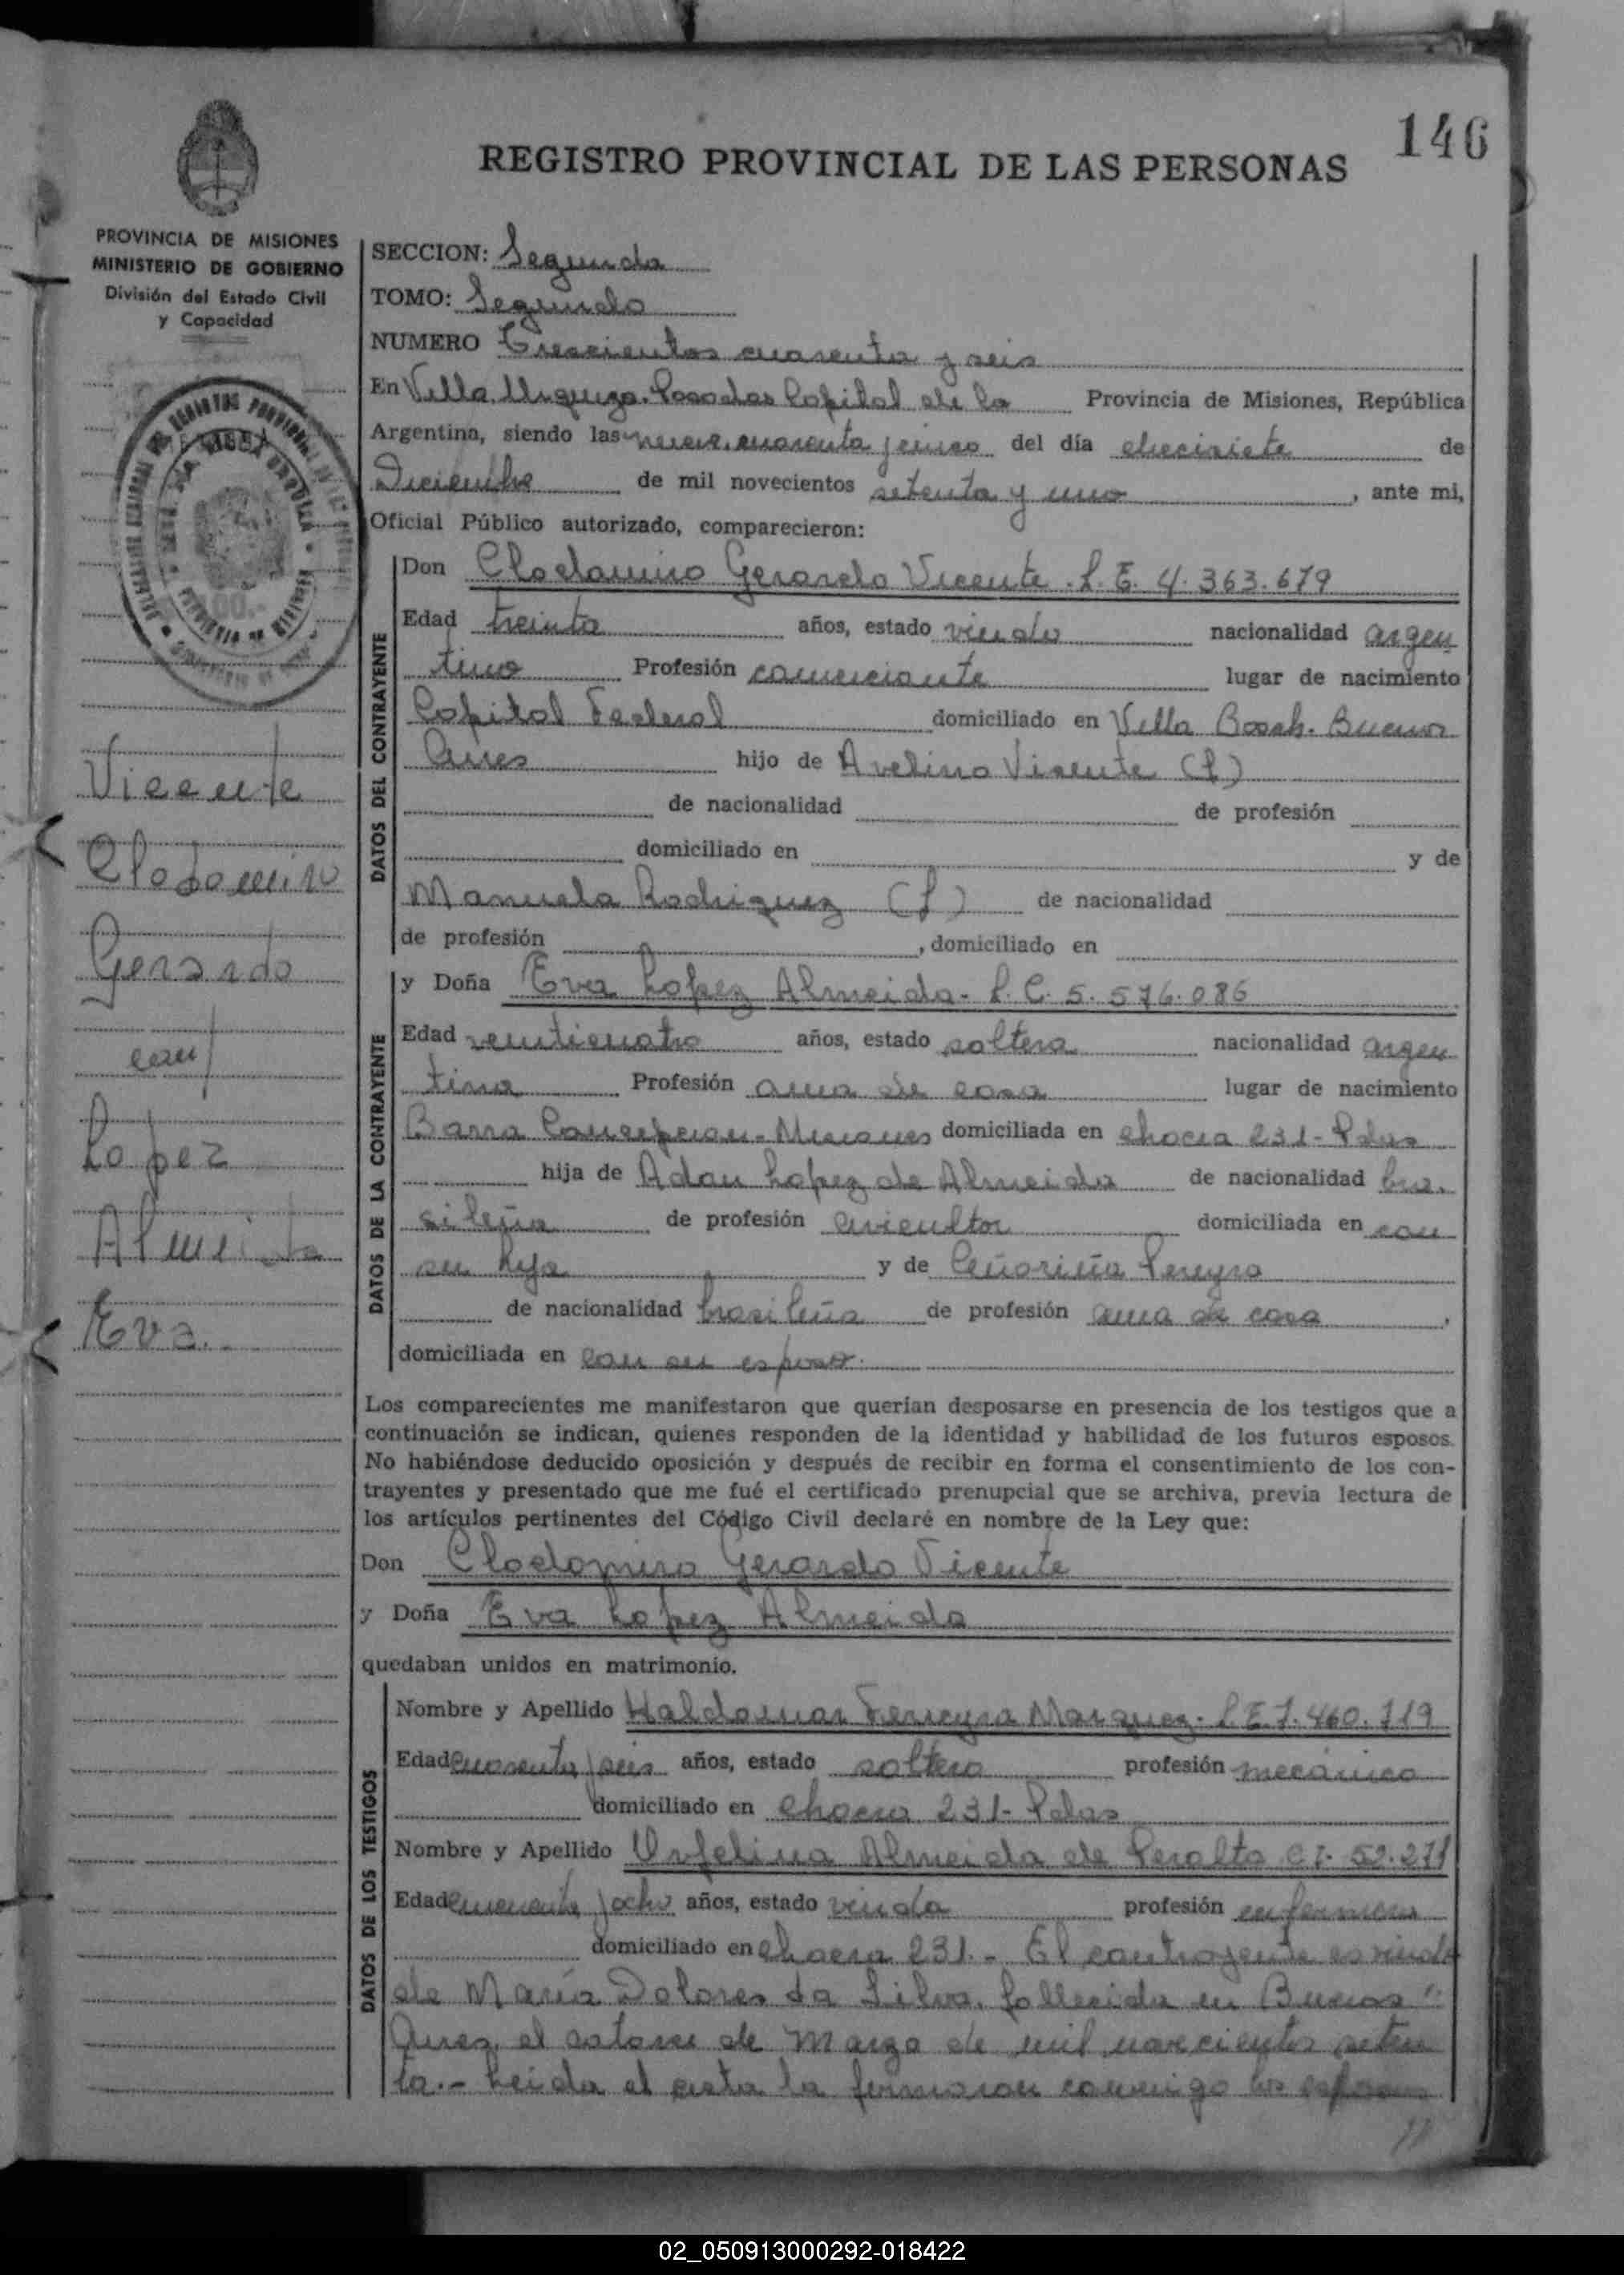 146
REGISTRO PROVINCIAL DE LAS PERSONAS
PROVINCIA DE MISIONES
MINISTERIO DE GOBIERNO
División del Estado Civil
y Capacidad
Vicente
Clodomiro
Gerardo
con
Lopez
Almeida
Eva.
SECCION: Segunda
TOMO: Segundo
NUMERO Trescientos cuarenta y seis
En Villa Urquiza. Posadas Capital de la Provincia de Misiones, República
Argentina, siendo las nueve cuarenta y cinco del día diecisiete de
Diciembre de mil novecientos setenta y uno, ante mi,
Oficial Público autorizado, comparecieron:
DATOS DEL CONTRAYENTE
Don Clodomiro Gerardo Vicente. L.E. 4.363.679
Edad treinta años, estado viudo nacionalidad argen
tino Profesión comerciante lugar de nacimiento
Capital Federal domiciliado en Villa Bosch. Buenos
Aires hijo de Avelino Vicente (f)
de nacionalidad de profesión
domiciliado en y de
Manuela Rodriguez (f) de nacionalidad
de profesión , domiciliado en
DATOS DE LA CONTRAYENTE
y Doña Eva Lopez Almeida - L.C. 5.576.086
Edad veinticuatro años, estado soltera nacionalidad argen
tina Profesión ama de casa lugar de nacimiento
Barra Concepcion - Misiones domiciliada en chacra 231 - Pdas
hija de Adan Lopez de Almeida de nacionalidad bra.
sileña de profesión domiciliada en con
su hija y de Pereyra
de nacionalidad brasileña de profesión ama de casa,
domiciliada en con su esposo.
Los comparecientes me manifestaron que querían desposarse en presencia de los testigos que a
continuación se indican, quienes responden de la identidad y habilidad de los futuros esposos.
No habiéndose deducido oposición y después de recibir en forma el consentimiento de los con-
trayentes y presentado que me fué el certificado prenupcial que se archiva, previa lectura de
los artículos pertinentes del Código Civil declaré en nombre de la Ley que:
Don Clodomiro Gerardo Vicente
y Doña Eva Lopez Almeida
quedaban unidos en matrimonio.
DATOS DE LOS TESTIGOS
Nombre y Apellido Haldomar Ferreyra Marquez - L.E. 7.460.719
Edad cuarenta y seis años, estado soltero profesión mecánico
domiciliado en chacra 231 - Pdas
Nombre y Apellido Orfelina Almeida de Peralta C.I. 52.271
Edad y ocho años, estado viuda profesión enfermera
domiciliado en chacra 231. - El contrayente es viudo
de María Dolores da Silva, fallecida en Buenos
Aires, el catorce de Marzo de mil novecientos seten
ta. - Leida el acta la firmaron conmigo los esposos
02_050913000292-018422